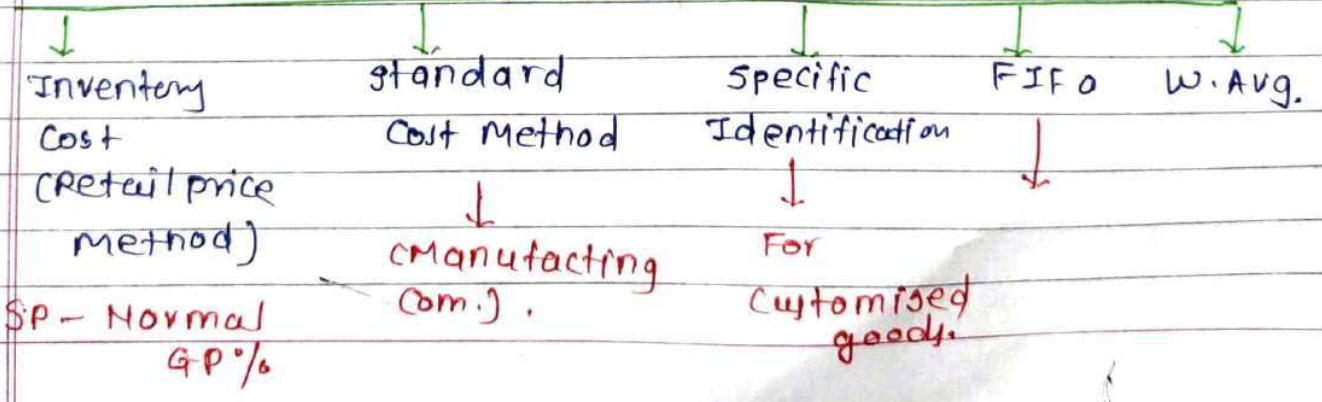 Inventory
Cost
(Retail price
Method)
SP - Normal
GP%
Standard
Cost Method
(Manufacting
Com.).
Specific
Identification
For
Customised
goods.
FIFO
W. Avg.